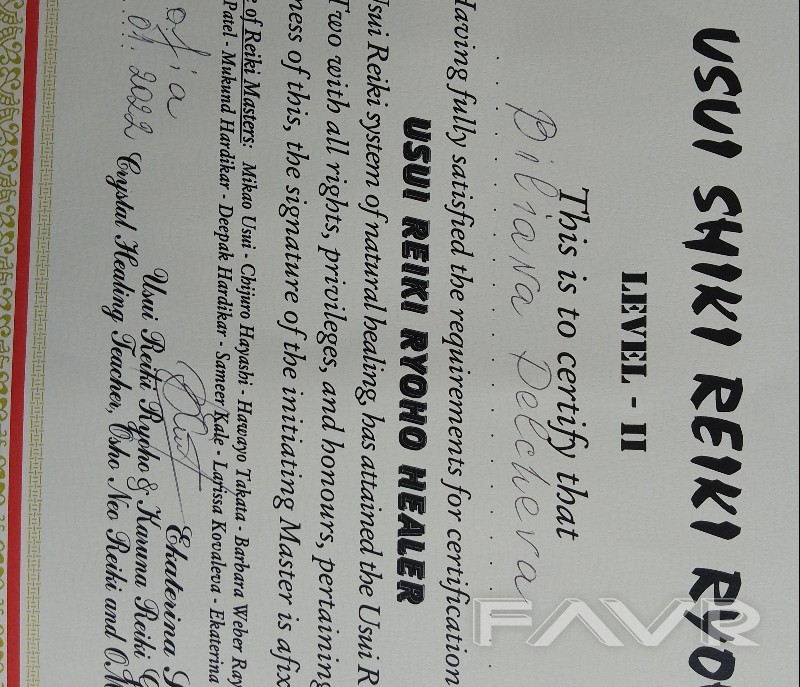 USUI SHIKI REIKI RYO
LEVEL - II
This is to certify that
Biliana Delcheva
Having fully satisfied the requirements for certification
USUI REIKI RYOHO HEALER
Usui Reiki system of natural healing, has attained the Usui R
Two with all rights, privileges, and honours, pertaining
ness of this, the signature of the initiating Master is afix
e of Reiki Masters: Mikao Usui - Chijuro Hayashi - Hawayo Takata - Barbara Weber Ray
Patel - Mukund Hardikar - Deepak Hardikar - Sameer Kale - Larissa Kovaleva - Ekaterina
ofia
01. 2022
Ekaterina
Usui Reiki Ryoho & Karuna Reiki
Crystal Healing Teacher, Osho Neo Reiki and OM
FAVR